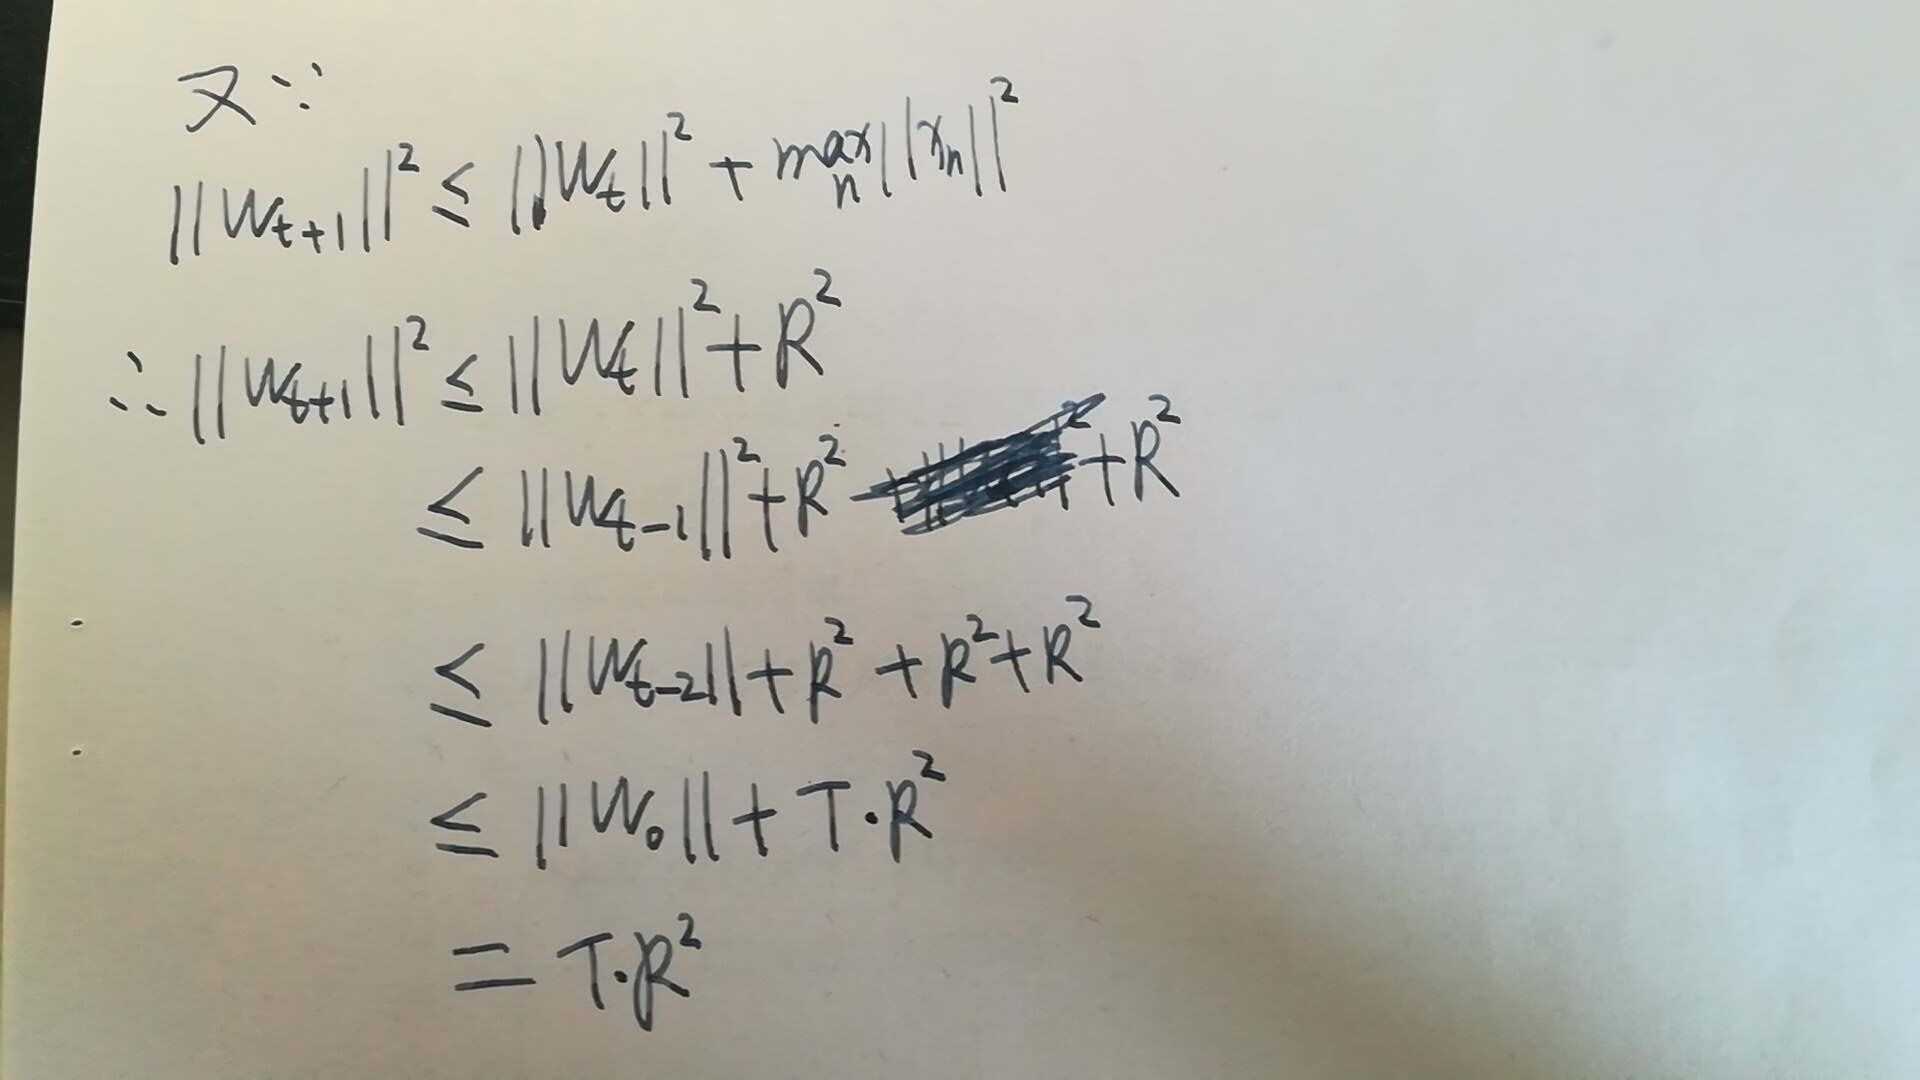 又∵
||W_{t+1}||² ≤ ||W_t||² + max_n ||x_n||²
∴ ||W_{t+1}||² ≤ ||W_t||² + R²
≤ ||W_{t-1}||² + R² + R²
≤ ||W_{t-2}|| + R² + R² + R²
≤ ||W_0|| + T·R²
= T·R²